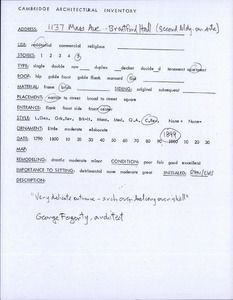 CAMBRIDGE ARCHITECTURAL INVENTORY
ADDRESS: 1137 Mass Ave - Brentford Hall (second bldg. on site)
USE: residential commercial religious
STORIES: 1 2 3 4 5
TYPE: single double row duplex decker double d tenement apartment
ROOF: hip gable front gable flank mansard flat
MATERIAL: frame brick SIDING: original subsequent
PLACEMENT: narrow to street broad to street square
ENTRANCE: flank front side front center
STYLE: L.Geo. Grk.Rev. Brkt. Mans. Med. Q.A. C.Rev. None+ None-
ORNAMENT: little moderate elaborate
DATE: 1790 1800 10 20 30 40 50 60 70 80 90 1900 10 20 30
1899
MAP:
REMODELING: drastic moderate minor CONDITION: poor fair good excellent
IMPORTANCE TO SETTING: detrimental none moderate great INITIALED:
DESCRIPTION:
"Very delicate entrance - arch over
George Fogerty, architect